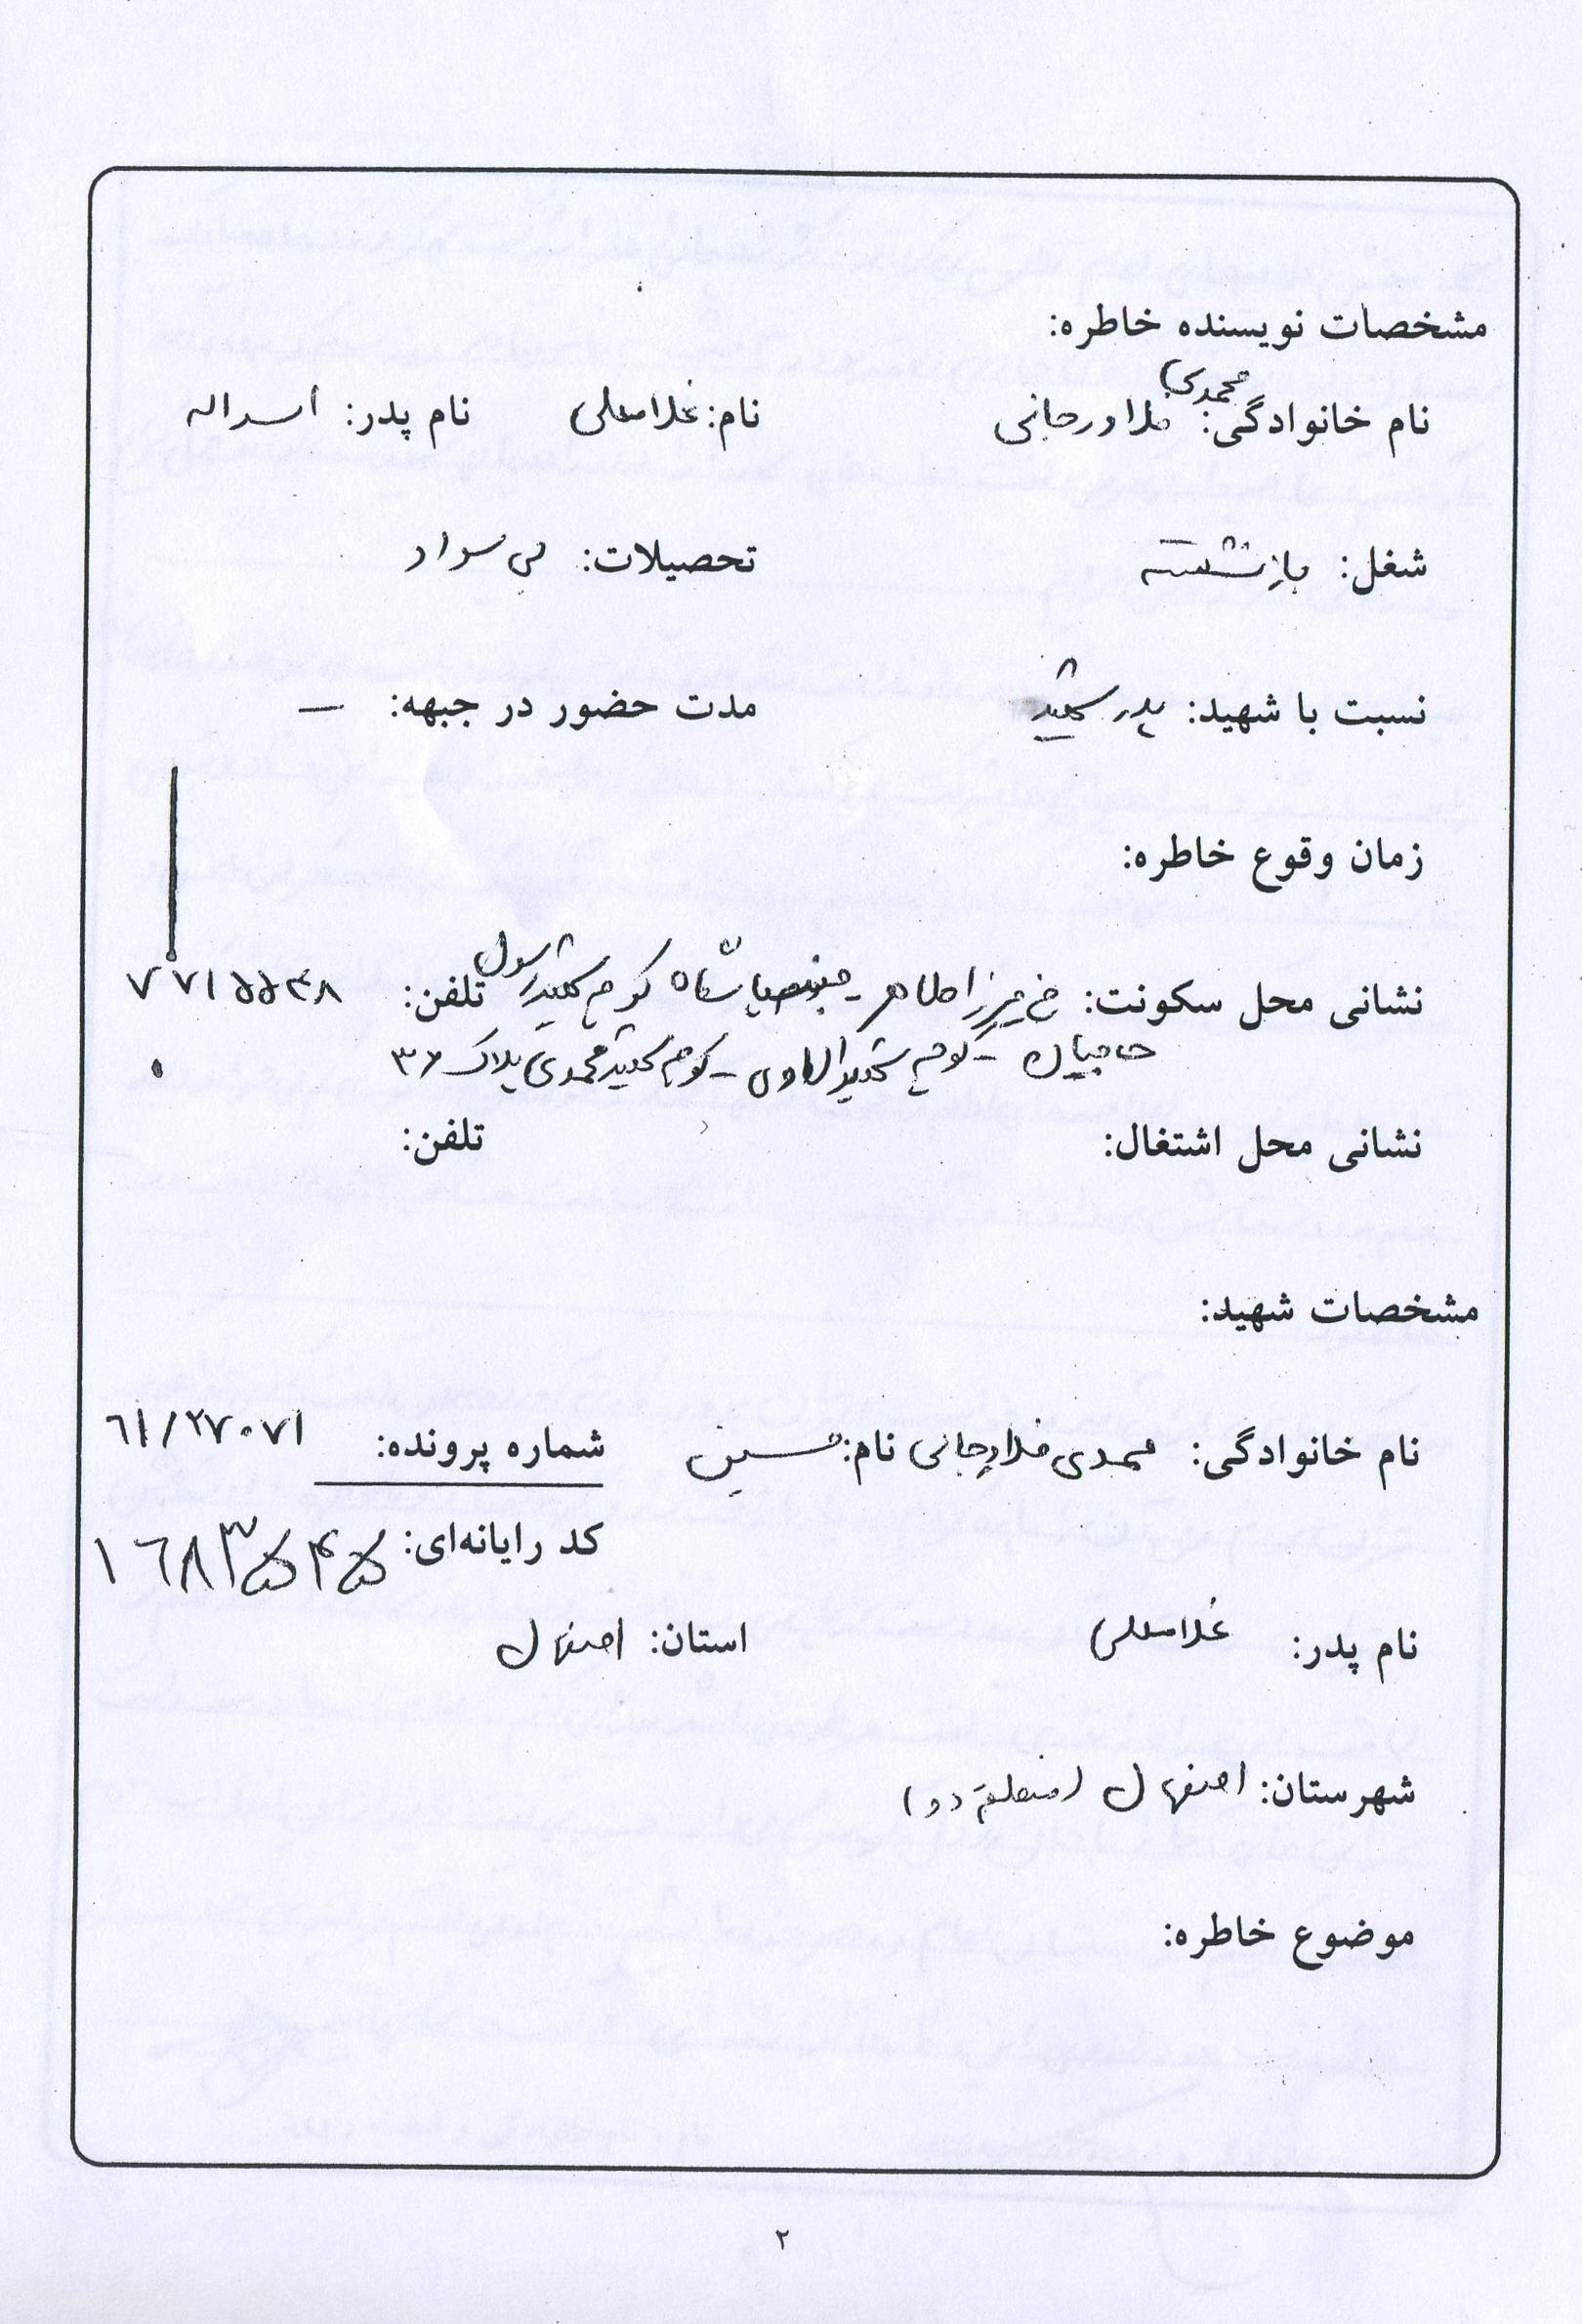 مشخصات نویسنده خاطره:
نام خانوادگی: محمدی فلاورجانی نام: غلامعلی نام پدر: اسداله
شغل: بازنشسته تحصیلات: بی سواد
نسبت با شهید: پدر شهید مدت حضور در جبهه: –
زمان وقوع خاطره:
نشانی محل سکونت: خ میرزا طاهر - جنب باشگاه کوچه شهید رسول تلفن: ۷۷۱۵۵۳۸
حاجیان - کوچه شهید - کوچه شهید محمدی پلاک ۳۶
نشانی محل اشتغال: تلفن:
مشخصات شهید:
نام خانوادگی: محمدی فلاورجانی نام: حسین شماره پرونده: ۶۱/۲۷۰۷۱
کد رایانه‌ای: ۱۶۸۳۵۴۵
نام پدر: غلامعلی استان: اصفهان
شهرستان: اصفهان (منطقه دو)
موضوع خاطره:
۲